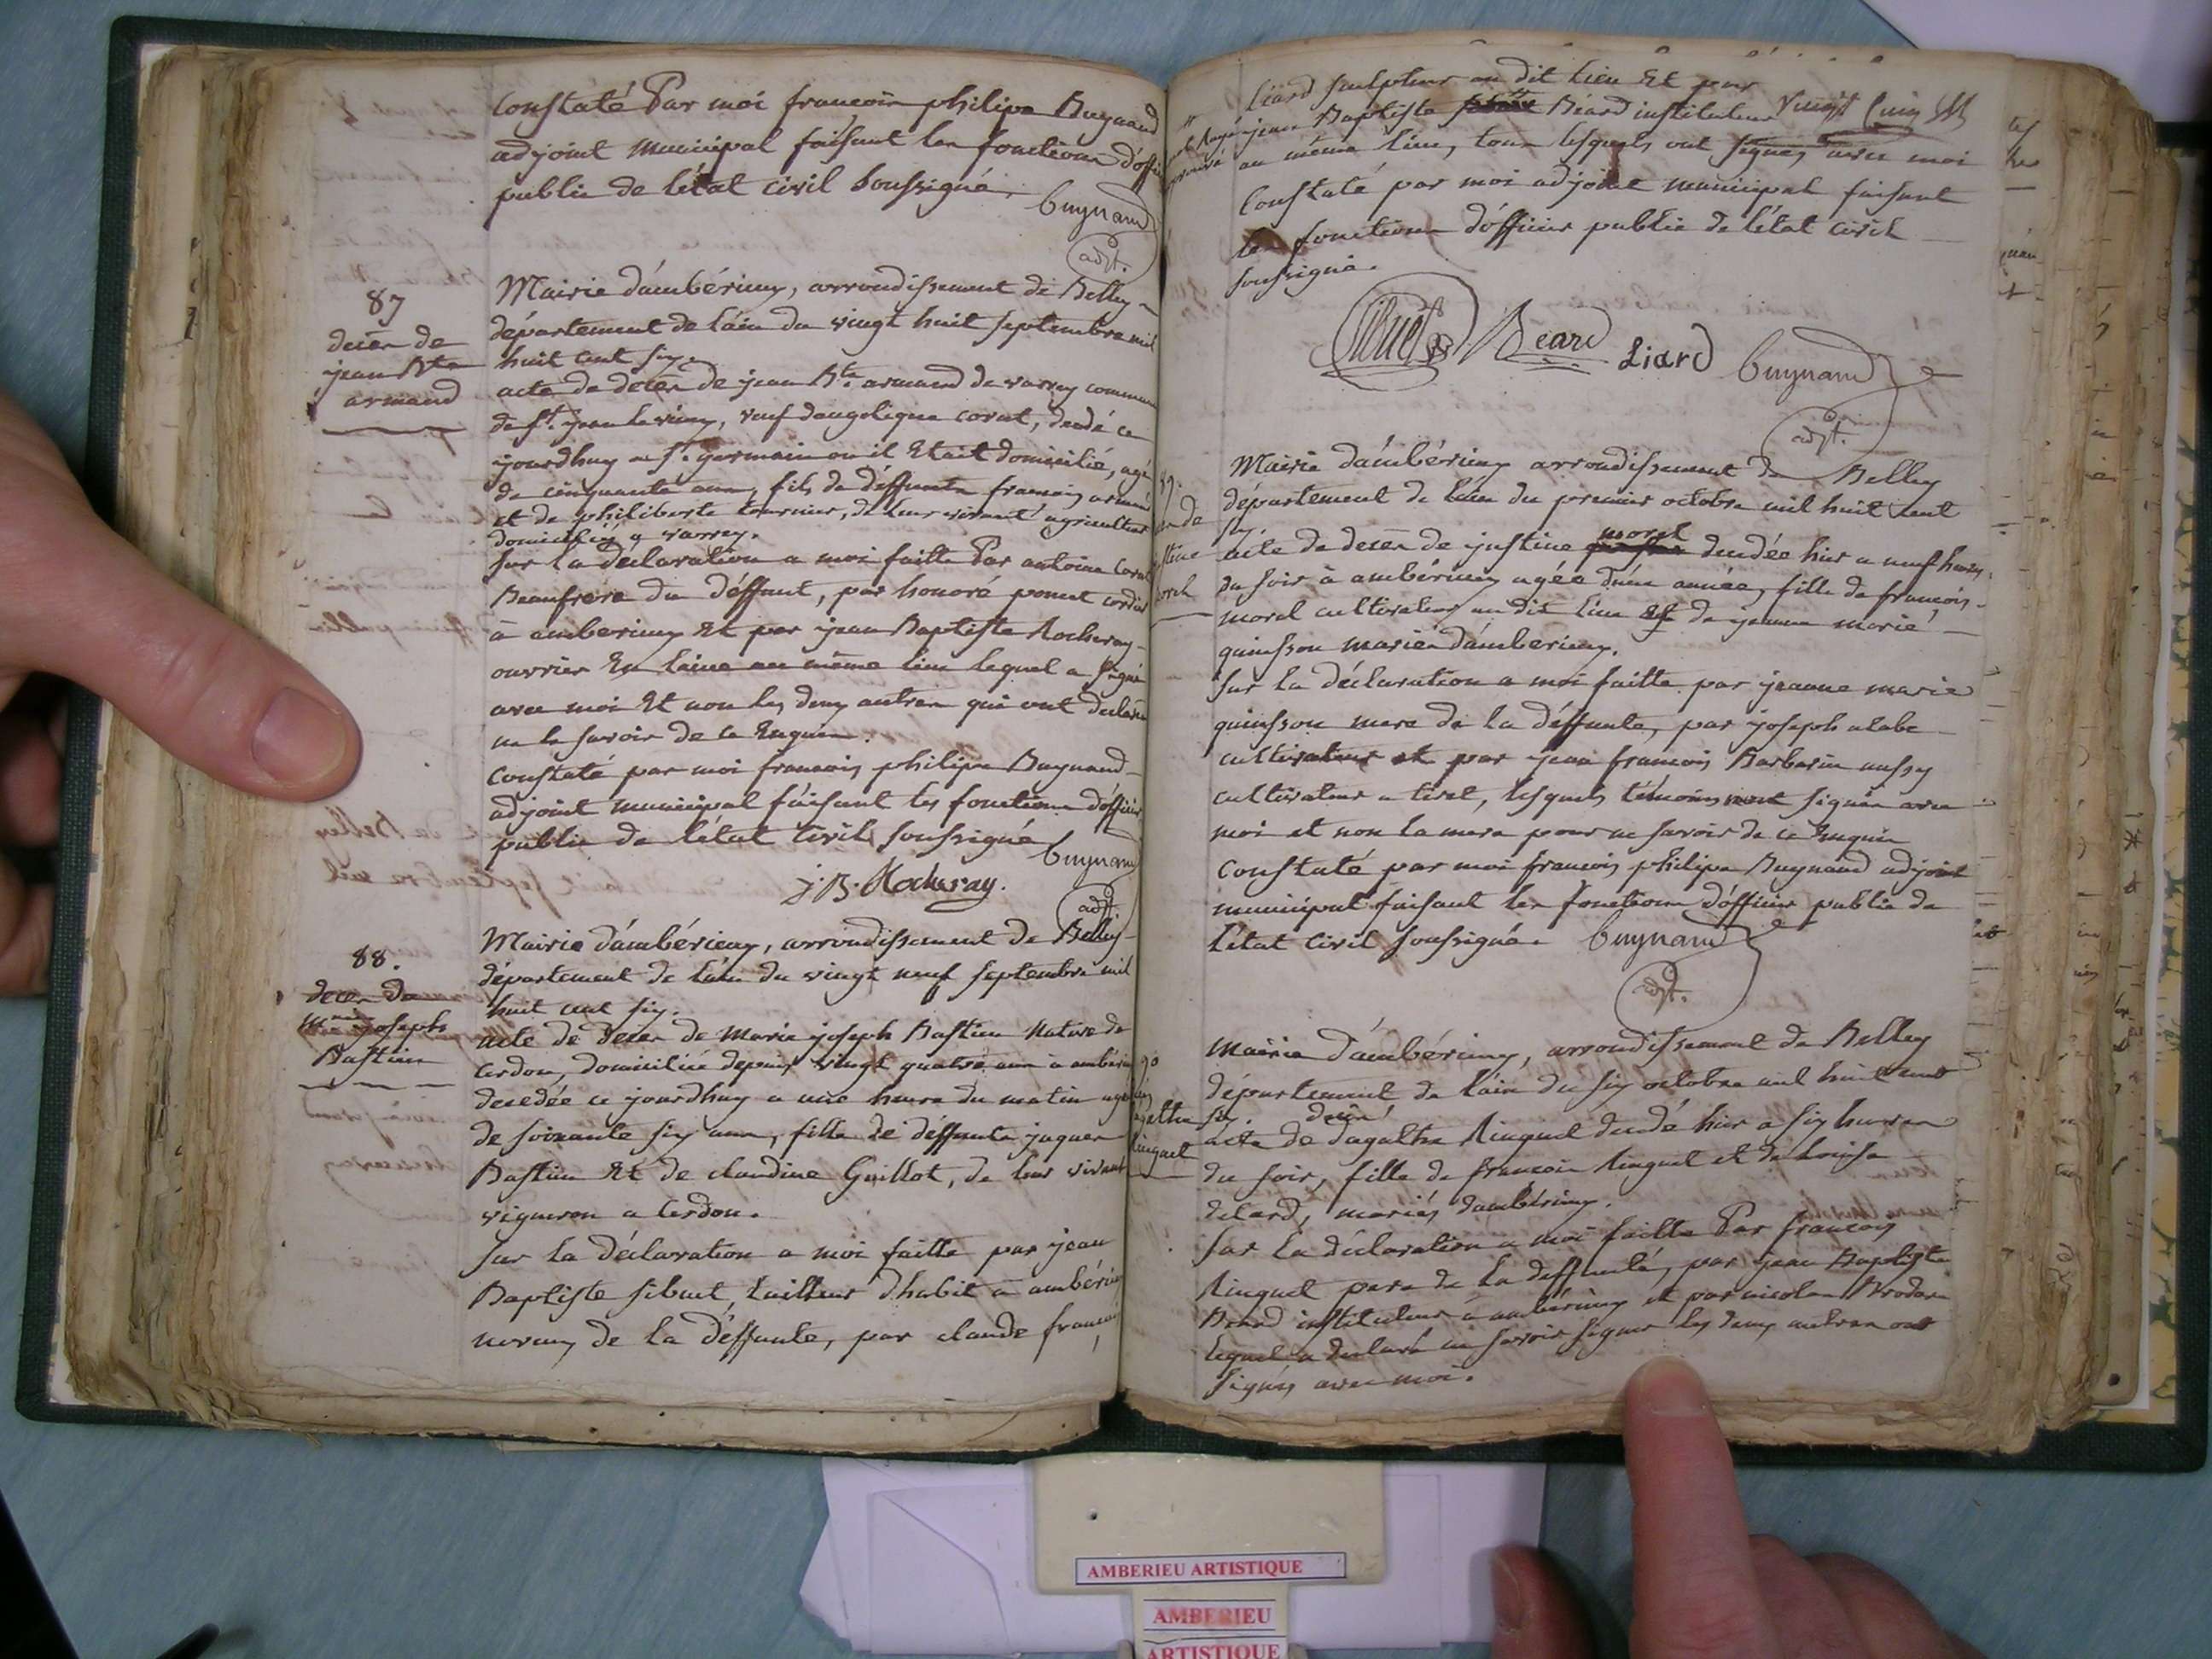 Constaté Par moi francois philipe Buynand
adjoint municipal faisant les fonctions d'offi
public de létat civil soussigné.
buynand
adjt.
87
deces de
jean Bte
armand
Mairie d'ambérieuy, arrondissement de Belley
département de láin du vingt huit septembre mil
huit cent six.
acte de deces de jean Bte armand de varrey commune
de st. jean le vieuy, veuf dangelique corat, decdé ce
jourdhuy a st. germain ou il Etait domicilié, agé
de cinquante ans, fils de déffunts francois armand
et de philiberte tournier, de leur vivant agriculteurs
domiciliés a varrey.
sur la déclaration a moi faitte Par antoine Corat
Beaufrere du déffunt, par honoré poncet cordier
à amberieuy Et par jean Baptiste Rocheray
ouvrier En laine au même lieu lequel a signé
avec moi Et non les deuy autres qui ont declaré
ne le savoir de ce Enquis.
Constaté par moi francois philipe Buynand
adjoint municipal faisant les fonctions d'officier
public de létat civil soussigné
buynand
J. B. Rocheray.
adjt.
88.
deces de
Marie joseph
Bastien
Mairie d'ambérieuy, arrondissement de Belley
département de láin du vingt neuf septembre mil
huit cent six.
acte de deces de Marie joseph Bastien Native de
Cerdon, domiciliée depuis vingt quatre ans à ambérieu
decedée ce jourdhuy a une heure du matin agé
de soixante six ans, fille de déffunts jaques
Bastien Et de claudine Guillot, de leur vivant
vigneron a Cerdon.
sur la déclaration a moi faitte par jean
Baptiste sibuet, tailleur d'habit à ambérieu
neveuy de la déffunte, par claude francois
Liard sculpteur au dit lieu Et par
jean Baptiste Béard instituteur
au même lieu, tous lesquels ont signés avec moi
Constaté par moi adjoint municipal faisant
les fonctions d'officier public de létat civil
soussigné.
Sibuet Beard Liard buynand
adjt.
Mairie d'ambérieuy arrondissement de Belley
département de láin du premier octobre mil huit cent
six.
acte de deces de justine morel decdée hier a neuf heures
du soir à ambérieuy agée dúne année, fille de francois
morel cultivateur au dit lieu Et de jeanne marie
quinsson mariés d'amberieuy.
sur la déclaration a moi faitte par jeanne marie
quinsson mere de la déffunte, par joseph alabe
cultivateur et par jean francois Barbarin aussy
cultivateur a tiret, lesquels témoins ont signés avec
moi et non la mere pour ne savoir de ce Enquis
Constaté par moi francois philipe Buynand adjoint
municipal faisant les fonctions d'officier public de
létat civil soussigné. buynand
adjt.
90
agathe
Ringuet
Mairie d'ambérieuy, arrondissement de Belley
département de láin du six octobre mil huit cent
six. deces
acte de d'agathe Ringuet decdé hier a six heures
du soir, fille de francois Ringuet et de Louise
, mariés d'ambérieuy.
sur la déclaration a moi faitte Par francois
Ringuet pere de la deffunte, par jean Baptiste
Beard instituteur à ambérieuy et par nicolas Brodare
lequel a declaré ne savoir signer les deuy autres ont
signés avec moi.
AMBERIEU ARTISTIQUE
AMBERIEU
ARTISTIQUE